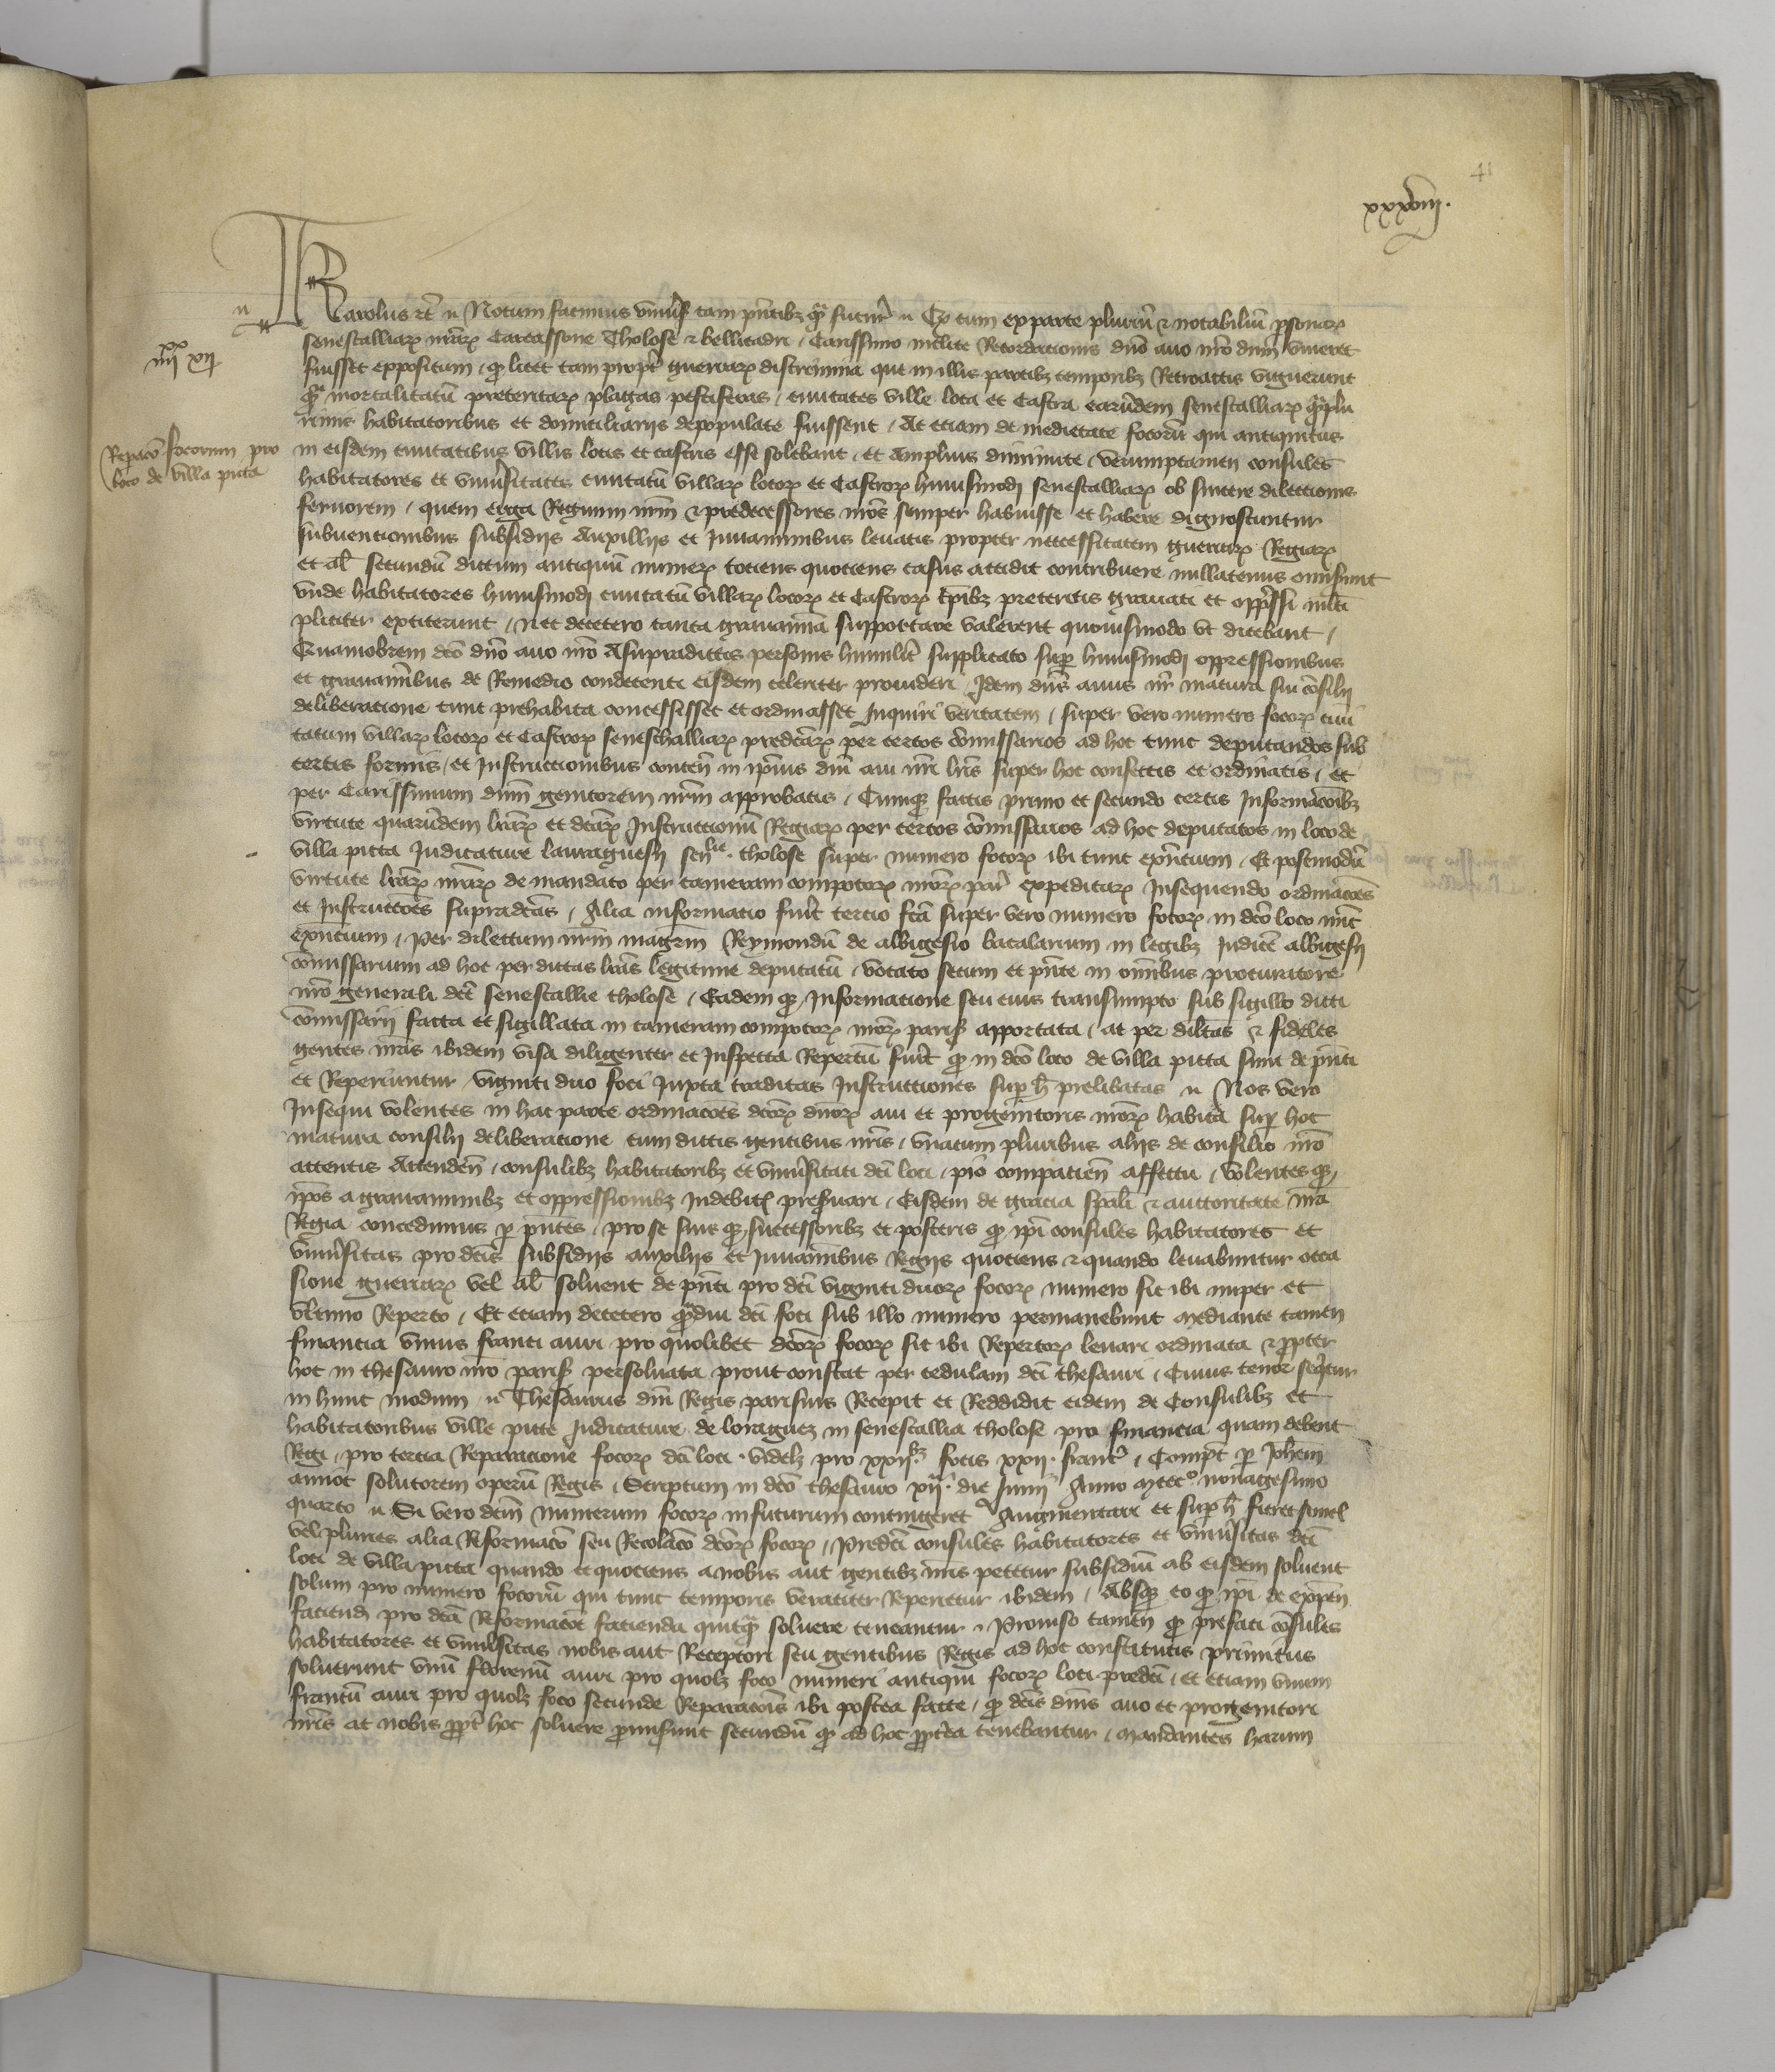 41
xxxviii.
Karolus etc̄ ꝛ Notum facimus univ̄s tam pn̄tibꝫ qͣ futur̄ ꝛ Qꝫ cum ex parte plurīu ⁊ notabiliū ꝑsonaꝝ
iiiixx xii
senescalliaꝝ nr̄aꝝ Carcassone Tholose ⁊ bellicadri, Carissimo inclite Recordacionis dn̄o avo nr̄o dum viveret
fuisset expositum, qꝫ licet tam propt̄ guerraꝝ discrimina que in illis partibꝫ temporibꝫ Retroactis viguerunt
qͣ mortalitatū preteritaꝝ plagas pestiferas, civitates ville loca et Castra earūdem senescalliaꝝ qͣplu
rimis habitatoribus et domiciliariis depopulate fuissent, Ac etiam de medietate focorū qui antiquitus
Repac̄o focorum pro
loco de villa picta
in eisdem civitatibus villis locis et castris esse solebant, et Amplius diminute, verumptamen consules
habitatores et univ̄sitates civitatū villaꝝ locoꝝ et Castroꝝ huiusmodi senescalliaꝝ ob sincere dilectionis
fervorem, quem erga Regnum nr̄m ⁊ predecessores nr̄os semper habuisse et habere dignoscuntur
subvencionibus subsidiis Auxiliis et Iuvaminibus levatis propter neccessitatem guerraꝝ Regiaꝝ
et al̄ secundū dictum antiquū numeꝝ tociens quociens casus accidit contribuere nullatenus omiserunt
vnde habitatores huiusmodi civitatū villaꝝ locoꝝ et Castroꝝ t̄pibꝫ preteritis gravati et opp̄ssi mlti
pliciter extiterunt, nec decetero tanta gravamina supportare valerent quovismodo ut dicebant,
Quamobrem dc̄o dn̄o avo nr̄o A supradictis personis humilit̄ supplicato suꝑ huiusmodi oppressionibus
et gravamībus de Remedio condecenti eisdem celeriter provideri, Idem dn̄s avus nr̄ matura sui cōsilii
deliberacione tunc prehabita concessisset et ordinasset Inquiri veritatem, super vero numero focoꝝ civi
tatum villaꝝ locoꝝ et Castroꝝ senescalliaꝝ predc̄aꝝ per certos cōmissarios ad hoc tunc deputandos sub
certis formis, et Instructionibus conten̄ in ip̄ius dn̄i avi nr̄i lr̄is super hoc confectis et ordinatis, et
per Carissimum dn̄m genitorem nr̄m approbatis, Cumqꝫ factis primo et secundo certis Informac̄oibꝫ
virtute quarūdem lr̄aꝝ et dc̄aꝝ Instructionū Regiaꝝ per certos cōmissarios ad hoc deputatos in loco de
villa picta Iudicature lauraguesii sen̄lie. tholose super numero focoꝝ ibi tunc exn̄tium, Et postmodū
virtute lr̄aꝝ nr̄aꝝ de mandato per cameram compotoꝝ nr̄oꝝ par̄ expeditaꝝ Insequendo ordinac̄oes
et Instructōes supradc̄as, Alia informatio fuit tercio fc̄a super vero numero focoꝝ in dc̄o loco nūc
exn̄tium, per dilectum nr̄m magr̄m Reymondū de albigesio bacalarium in legibꝫ Iudicē albigesii
cōmissarium ad hoc per dictas lr̄as legitime deputatū, vocato secum et pn̄te in om̄ibus procuratore
nr̄o generali dc̄e senescallie tholose, Eademqꝫ Informatione seu eius transumpto sub sigillo dicti
cōmissarii facta et sigillata in cameram compotoꝝ nr̄oꝝ parisꝭ apportata, ac per dilc̄os ⁊ fideles
gentes nr̄as ibidem visa diligenter et Inspecta Repertū fuit qꝫ in dc̄o loco de villa picta sunt de pn̄ti
et Reperiuntur viginti duo foci Iuxta traditas Instructiones suꝑ h̄ prelibatas ꝛ Nos vero
Insequi volentes in hac parte ordinacōes dc̄oꝝ dn̄oꝝ avi et progenitoris nr̄oꝝ habita suꝑ hoc
matura consilii deliberatione cum dictis gentibus nr̄is, vnacum pluribus aliis de consilio nr̄o
attentis Attenden̄, consulibꝫ habitatoribꝫ et univ̄sitati dc̄i loci, pio compacien̄ affectu, volentesqꝫ
ip̄os a gravaminibꝫ et oppressionibꝫ Indebitꝭ pres̄vari, Eisdem de gracia sp̄ali ⁊ auctoritate nr̄a
Regia concedimus ꝑ pn̄tes, pro se suisqꝫ successoribꝫ et posteris qꝫ ip̄i consules habitatores et
univ̄sitas pro dc̄is subsidiis auxiliis et Iuvamībus Regiis quociens ⁊ quando levabuntur occa
sione guerraꝝ vel al̄ soluent de pn̄ti pro dc̄i viginti duoꝝ focoꝝ numero sic ibi nuper et
ultimo Reperto, Et etiam decetero qͣdiu dc̄i foci sub illo numero permanebunt mediante tamen
financia vnius franci auri pro quolibet dc̄oꝝ focoꝝ sic ibi Repertoꝝ levari ordinata ⁊ ꝓpter
hoc in thesauro nr̄o parisꝭ persoluta prout constat per cedulam dc̄i thesauri, Cuius tenor seqͥtur
in hunc modum ꝛ Thesaurus dn̄i Regis parisius Recepit et Reddidit eidem de Consulibꝫ et
habitatoribus ville picte Iudicature de loraguez in senescallia tholose pro financia quam debent
Regi, pro tercia Reparatione focoꝝ dc̄i loci. videlꝫ pro xxiibꝫ. focis xxii. franc̄, Compt̄ ꝑ Joh̄em
amiot solutorem operū Regis, Scriptum in dc̄o thesauro xiia. die Junii Anno mccco. nonagesimo
quarto ꝛ Si vero dc̄m numerum focoꝝ in futurum contingeret Augmentari et suꝑ h̄ fieret semel
vel plures alia Reformac̄o seu Recolac̄o dc̄oꝝ focoꝝ, predc̄i consules habitatores et univ̄sitas dc̄i
loci de villa picta quando et quociens a nobis aut gentibꝫ nr̄is petetur subsidiū ab eisdem soluent
solum pro numero focorū qui tunc temporis veraciter Reperietur ibidem, Absqꝫ eo qꝫ ip̄i de expen̄
faciend̄ pro dc̄a Reformac̄oe facienda quicqͣ soluere teneantur ꝛ Proviso tamen qꝫ prefati cōsules
habitatores et univ̄sitas nobis aut Receptori seu gentibus Regis ad hoc constitutis primitus
soluerunt vnū florenū auri pro quolꝫ foco numeri antiqui focoꝝ loci predc̄i, et etiam vnum
francū auri pro quolꝫ foco secunde Reparac̄ois ibi postea facte, qꝫ dc̄is dn̄is avo et progenitori
nr̄is ac nobis ꝓpt̄ hoc soluere ꝓmiserunt secundū qꝫ ad hoc ꝓpt̄ea tenebantur, mandantes harum